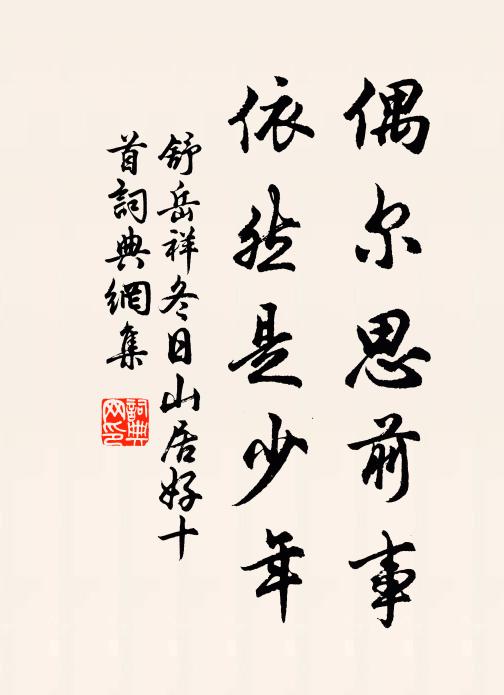 偶尔思前事
依然是少年
舒岳祥冬日山居好十
首詞典網集
詞典
网印